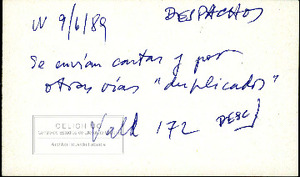 W 9/6/89
DESPACHOS
Se envían cartas y por
otras vías "duplicados"
Vald 172 DESC